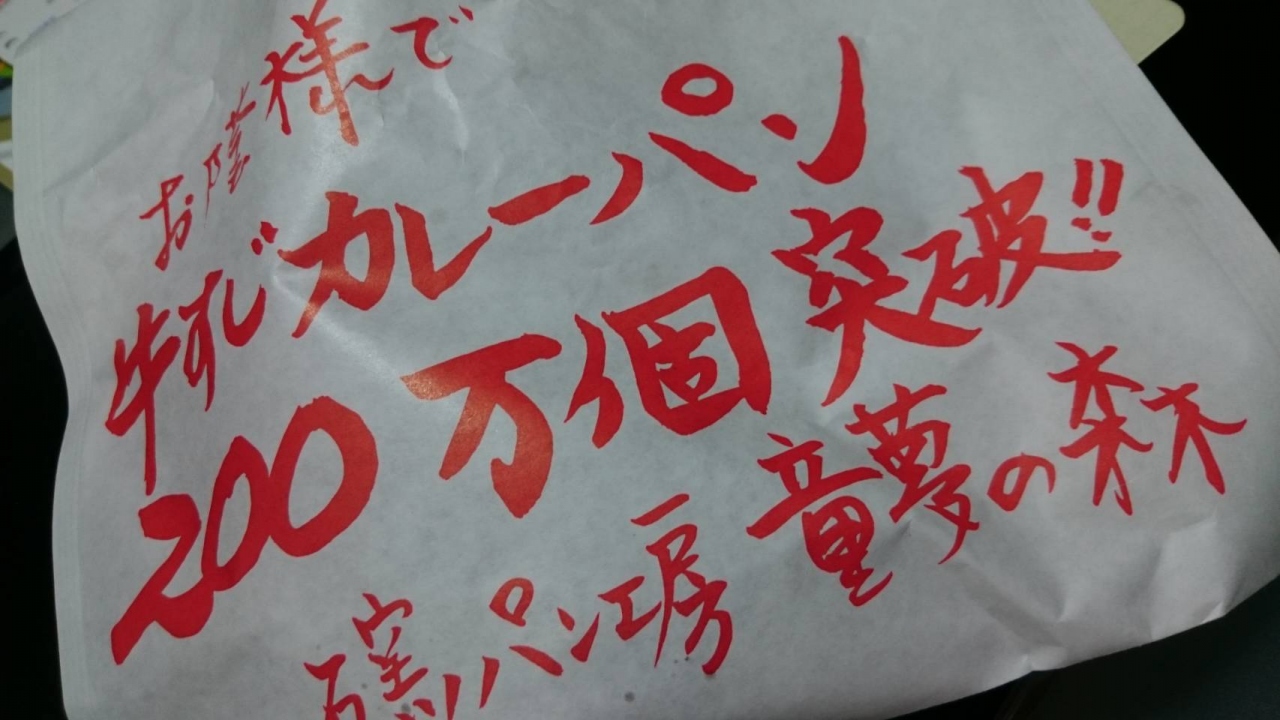 お蔭様で
牛すじカレーパン
200万個突破!!
石窯パン工房 童夢の森